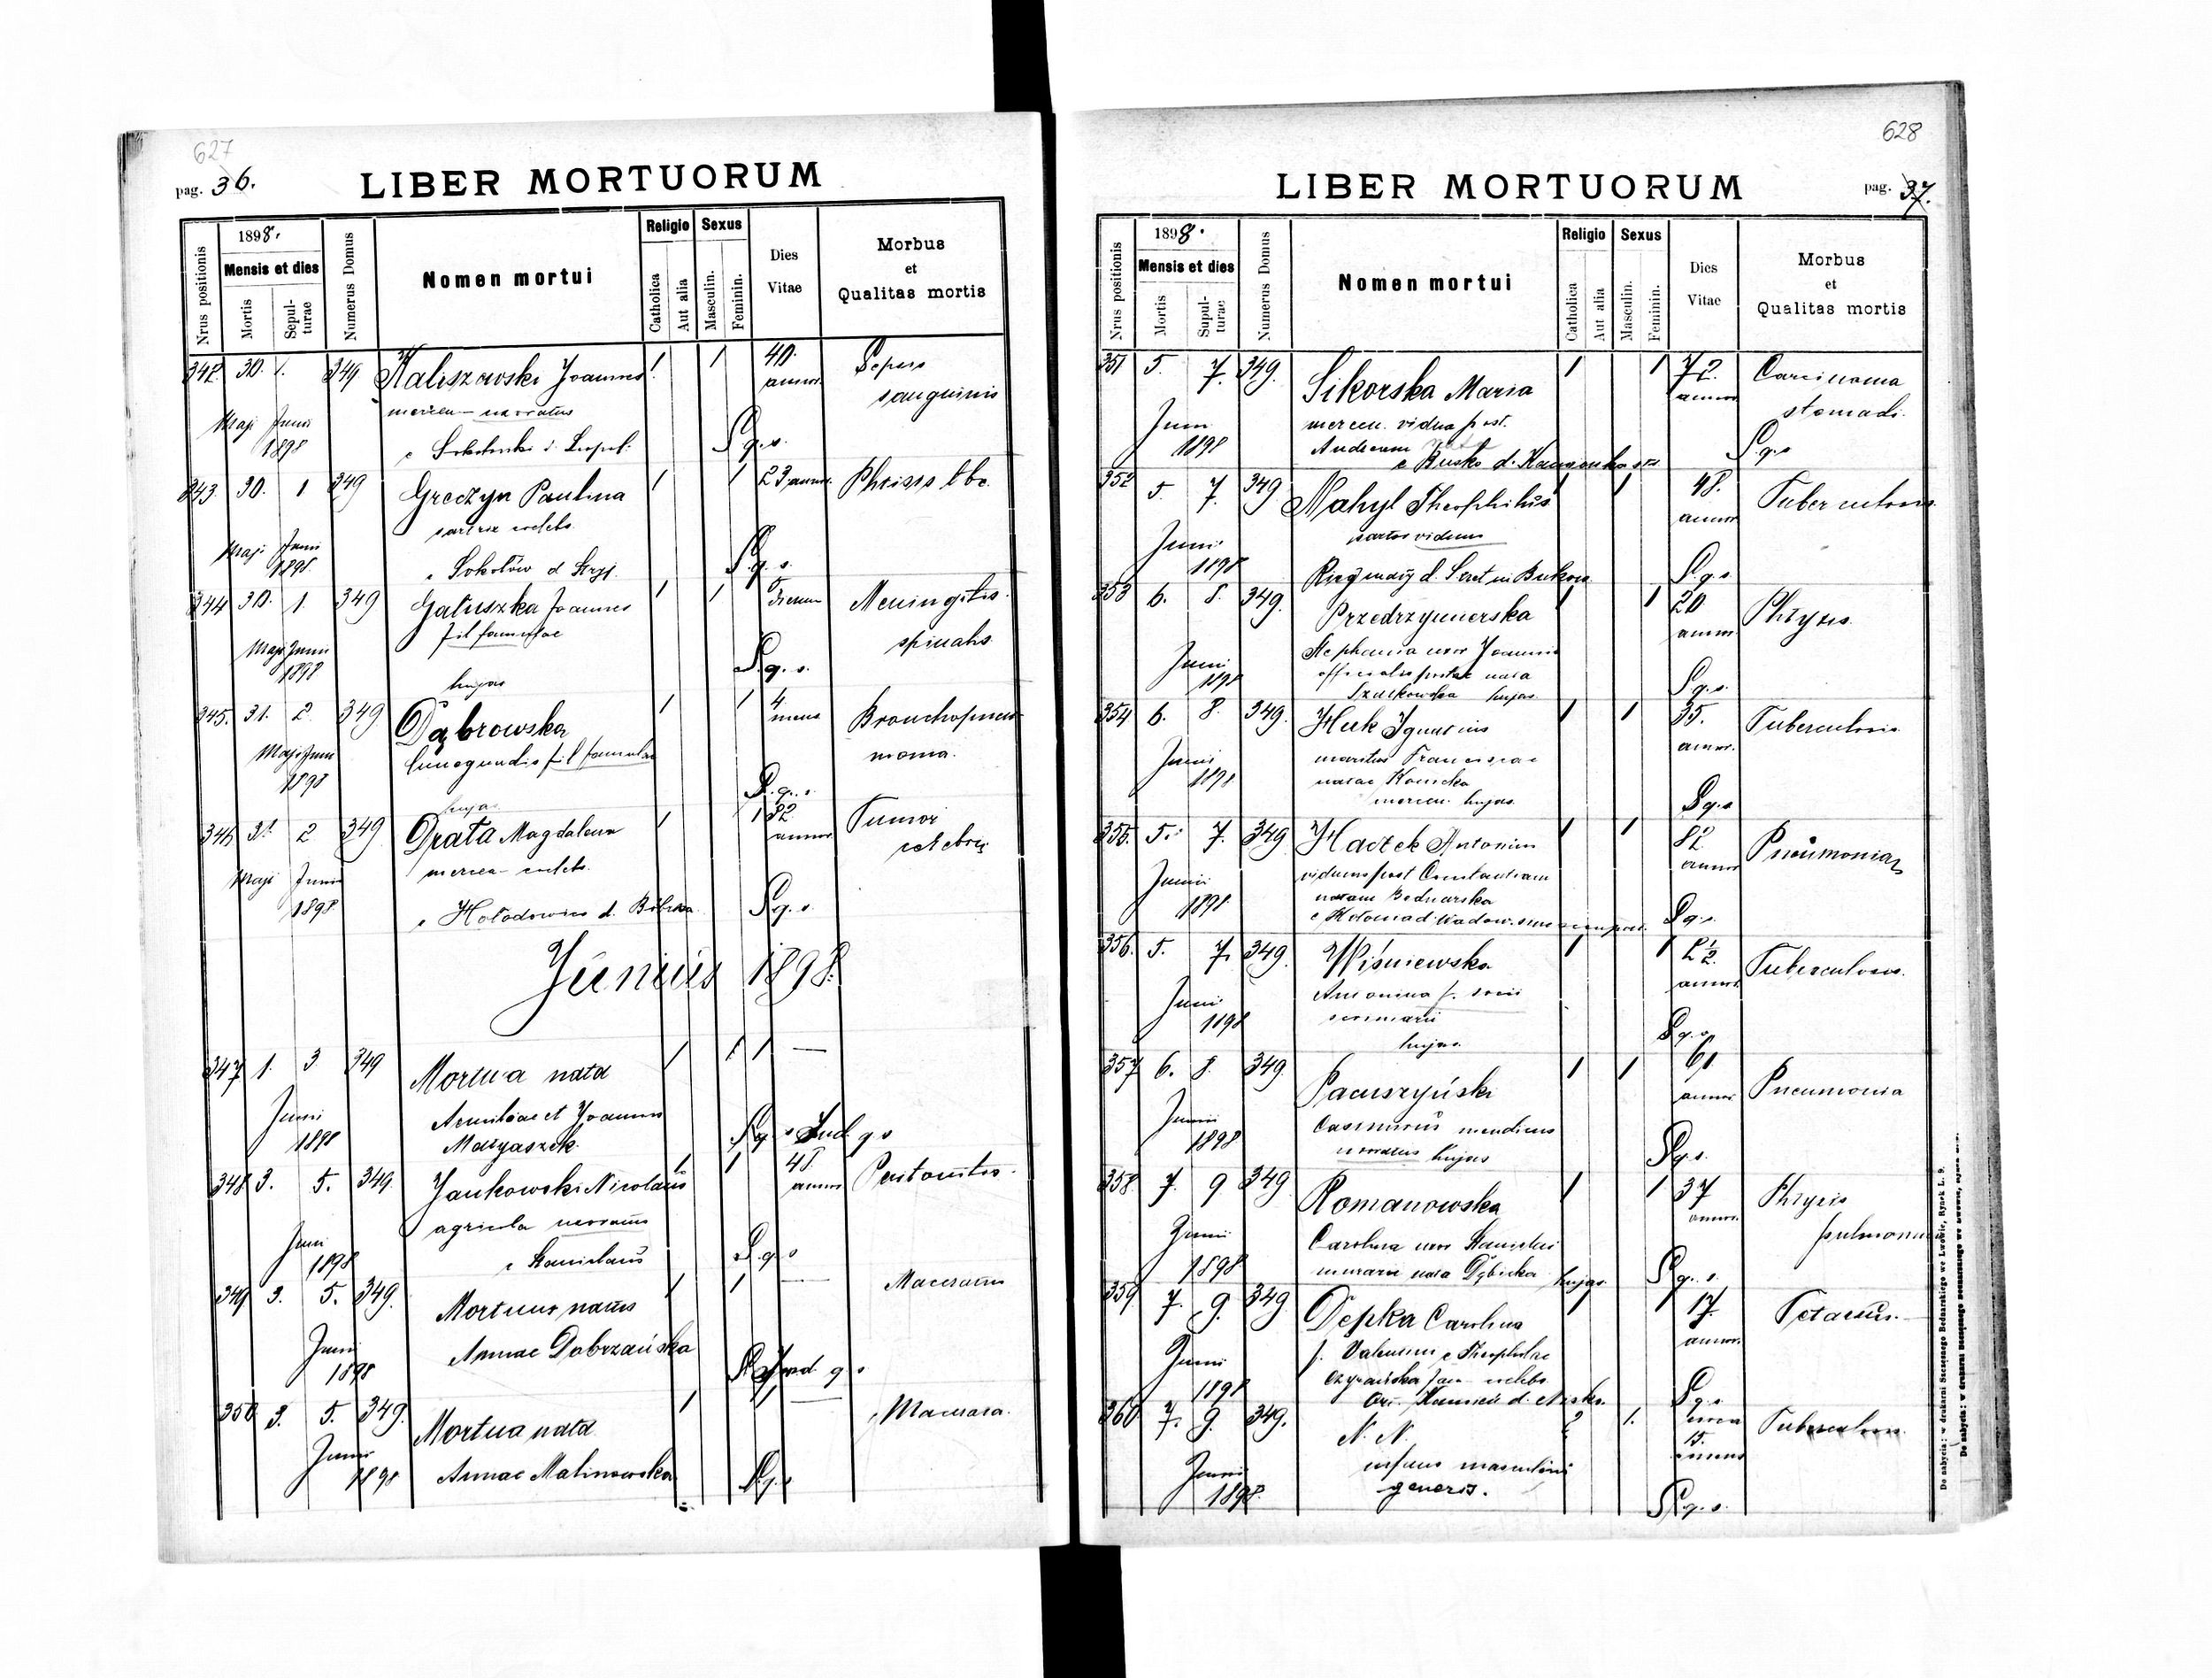 627
pag. 36.
LIBER MORTUORUM
Nrus positionis
1898.
Mensis et dies
Mortis
Sepul-
turae
Numerus Domus
Nomen mortui
Religio
Catholica
Aut alia
Sexus
Masculin.
Feminin.
Dies
Vitae
Morbus
et
Qualitas mortis
342. 30. 1. 349 Kaliszewski Joannes 1 1 40. Sepsis
annor. sanguinis
Maji Junii
1898
S. g. s.
343. 30. 1 349 Greczyn Paulina 1 1 23 annor. Phtisis tbc.
sartrix coelebs
Maji Junii
1898 Sokołów d Stryj. S. g. s.
344 30. 1. 349 Gałuszka Joannes 1 1 dierum Meningitis
fil famulae spinalis
Maji Junii
1898 hujas S. g. s.
345. 31. 2 349 Dąbrowska 1 1 4 mens Bronchopneu-
Maji Juni Cunegundis fil famulae monia.
1898
hujas S. g. s.
346 31 2 349 Drata Magdalena 1 1 32 annor Tumor
cerebri
Maji Junii
1898 Hołodowice d. Bóbrka S. g. s.
Junius 1898.
347 1. 3 349 Mortua nata 1 1 1 —
Junii Aemiliae et Joannis
1898 Matyaszek. S. g. s. Sud g s
348 3. 5. 349 Jankowski Nicolaus 1 1 48 annor Peritonitis.
agricola uxoratus
Juni
1898 e Stanislaus S. g. s
349 3. 5. 349. Mortuus natus 1 1 — Maceratus
Junii Annae Dobrzańska
1898
350 3. 5. 349. Mortua nata 1 1 — Macerata.
Junii
1898 Annae Malinowska S. g. s
628
LIBER MORTUORUM
pag. 37.
Nrus positionis
1898.
Mensis et dies
Mortis
Supul-
turae
Numerus Domus
Nomen mortui
Religio
Catholica
Aut alia
Sexus
Masculin.
Feminin.
Dies
Vitae
Morbus
et
Qualitas mortis
351 5. 7. 349. Sikorska Maria 1 1 72. annor Carcinoma
stomachi.
Juni mercen. vidua post.
1898 Andream S. g. s
e Busko d. Kamionka str
352 5. 7. 349 Mahyl Theophilus 1 1 48. annor Tuberculosis.
sartor viduus
Junii
1898 d. Seret in Bukow S. g. s
353 6. 8. 349. Przedrzymirska 1 1 20 annor Phtysis.
Stephania uxor Joannis
Juni officialis postae nata
1898 Szulkowska hujas. S. g. s.
354 6. 8. 349. Huk Ignatius 1 1 35. annor. Tuberculosis.
Junii maritus Franciscae
1898 natae Konicka
mercen. hujas. S. g. s
355. 5. 7. 349 Haczek Antonius 1 1 82 annor Pneumonia
Junii viduus post Constantiam
1898. natam Bednarska
S. g. s.
356. 5. 7. 349. Wiśniewska 1 1 2 1/2. annor. Tuberculosis.
Antonina f. socii
Juni
1898 hujas. S. g. s.
357 6. 8. 349. Pacuszyński 1 1 61 annor. Pneumonia
Junii Casimirus mendicus
1898 uxoratus hujas S. g. s.
358 7. 9 349 Romanowska 1 1 37 annor. Phtysis
pulmonum
Junii Carolina uxor Stanislai
1898 murarii nata Dębicka hujas. S. g. s.
359 7. 9. 349 Depka Carolina 1 1 17. annor. Tetanus.
Junii f. Valentini e Theophilae
1898 S. g. s.
360 7. 9. 349. N. N. ? 1. circa Tuberculosis.
15.
Junii infans masculini
1898. generis. S. g. s.
Do nabycia: w drukarni Szczęsnego Bednarskiego we Lwowie, Rynek L. 9.